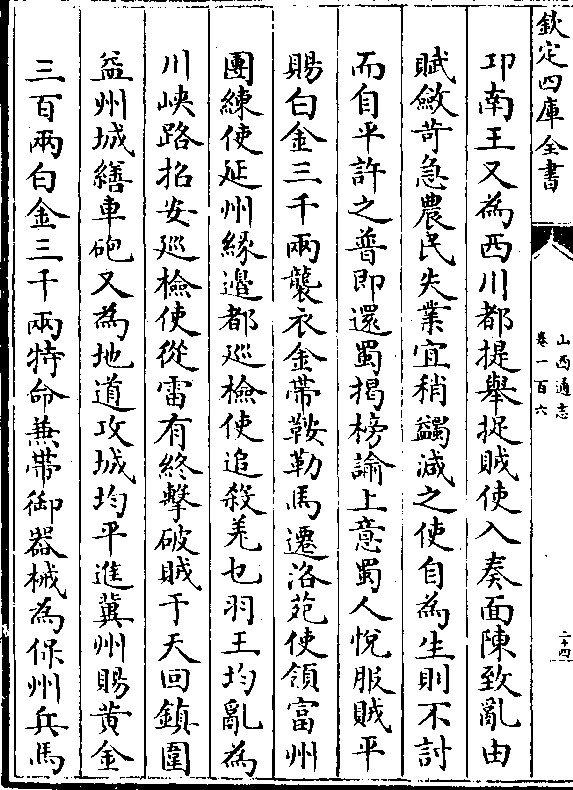 欽定四庫全書
山西通志
卷一百六
二十四
邛南王又為西川都提舉捉賊使入奏面陳致亂由
賦斂苛急農民失業宜稍蠲減之使自為生則不討
而自平許之普即還蜀揭榜諭上意蜀人悅服賊平
賜白金三千兩襲衣金帶鞍勒馬遷洛苑使領富州
團練使延州緣邊都巡檢使追殺羌乜羽王均亂為
川峽路招安巡檢使從雷有終擊破賊于天回鎮圍
益州城繕車砲又為地道攻城均平進冀州賜黄金
三百兩白金三千兩特命兼帶御器械為保州兵馬